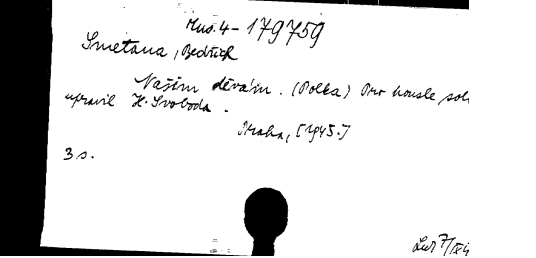 Mus. 4 - 179759
Smetana, Bedřich
Našim děvám. (Polka) Pro housle sol
upravil H. Svoboda.
Praha, [1945.]
3 s.